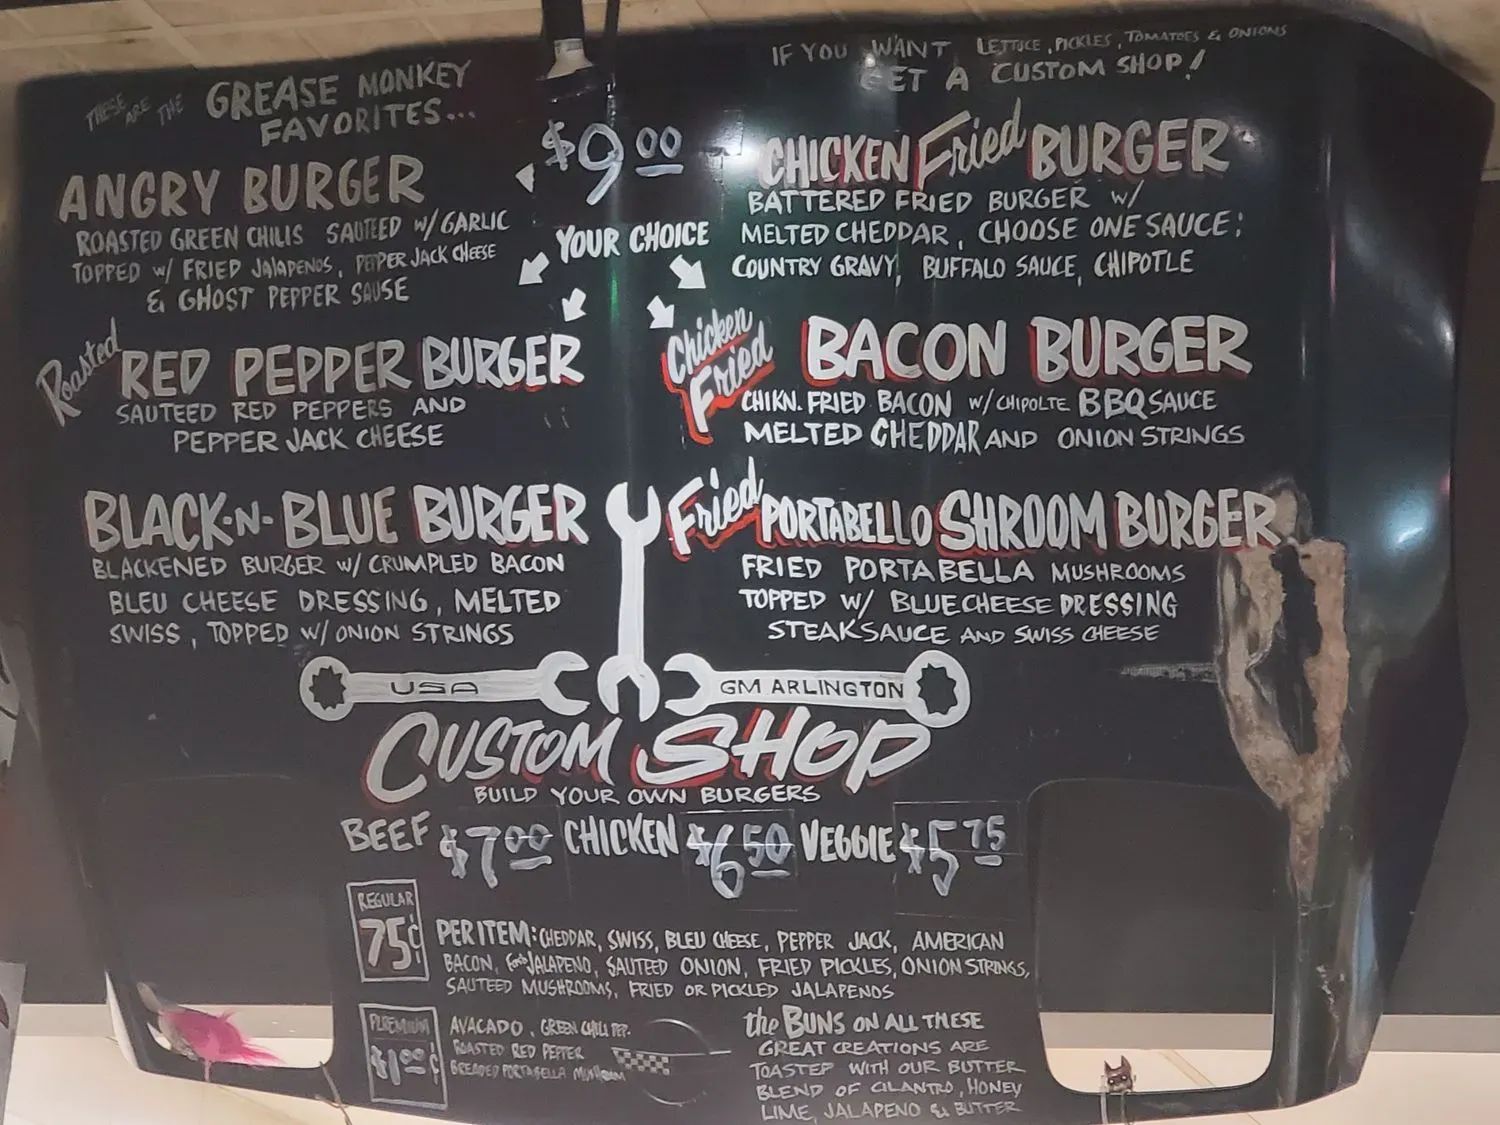 THESE ARE THE GREASE MONKEY
FAVORITES...
ANGRY BURGER
ROASTED GREEN CHILIS SAUTEED W/ GARLIC
TOPPED W/ FRIED JALAPENOS, PEPPER JACK CHEESE
& GHOST PEPPER SAUSE
Roasted RED PEPPER BURGER
SAUTEED RED PEPPERS AND
PEPPER JACK CHEESE
BLACK-N-BLUE BURGER
BLACKENED BURGER W/ CRUMPLED BACON
BLEU CHEESE DRESSING, MELTED
SWISS, TOPPED W/ ONION STRINGS
$9.00
YOUR CHOICE
IF YOU WANT LETTUCE, PICKLES, TOMATOES & ONIONS
GET A CUSTOM SHOP!
CHICKEN Fried BURGER
BATTERED FRIED BURGER W/
MELTED CHEDDAR, CHOOSE ONE SAUCE:
COUNTRY GRAVY, BUFFALO SAUCE, CHIPOTLE
Chicken Fried BACON BURGER
CHIKN. FRIED BACON W/ CHIPOLTE BBQ SAUCE
MELTED CHEDDAR AND ONION STRINGS
Fried PORTABELLO SHROOM BURGER
FRIED PORTABELLA MUSHROOMS
TOPPED W/ BLUE CHEESE DRESSING
STEAK SAUCE AND SWISS CHEESE
USA
GM ARLINGTON
CUSTOM SHOP
BUILD YOUR OWN BURGERS
BEEF $7.00 CHICKEN $6.50 VEGGIE $5.75
REGULAR
75¢
PER ITEM: CHEDDAR, SWISS, BLEU CHEESE, PEPPER JACK, AMERICAN
BACON, JALAPENO, SAUTEED ONION, FRIED PICKLES, ONION STRINGS,
SAUTEED MUSHROOMS, FRIED OR PICKLED JALAPENOS
PREMIUM
$1.00 ¢
AVACADO, GREEN CHILI PEP.
ROASTED RED PEPPER
BREADED PORTABELLA MUSHROOM
the BUNS ON ALL THESE
GREAT CREATIONS ARE
TOASTED WITH OUR BUTTER
BLEND OF CILANTRO, HONEY
LIME, JALAPENO & BUTTER